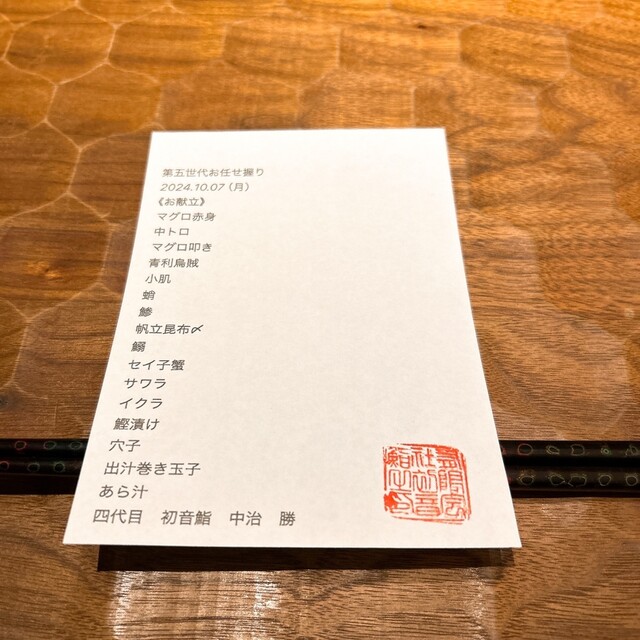 第五世代お任せ握り
2024.10.07（月）
《お献立》
マグロ赤身
中トロ
マグロ叩き
青利烏賊
小肌
蛸
鯵
帆立昆布〆
鰯
セイ子蟹
サワラ
イクラ
鰹漬け
穴子
出汁巻き玉子
あら汁
四代目 初音鮨 中治 勝